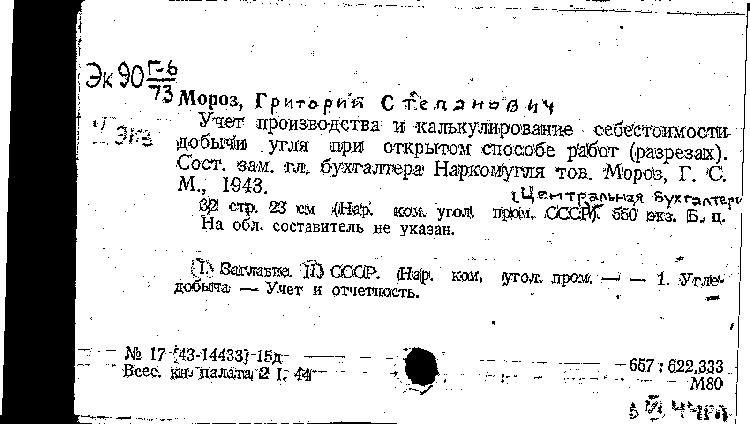 Эк 90 Г-6
73
Мороз, Григорий Степанович
Учет производства и калькулирование себестоимости
добычи угля при открытом способе работ (разрезах).
Сост. зам. гл. бухгалтера Наркомугля тов. Мороз, Г. С.
М., 1943.
(Центральная бухгалтери
32 стр. 23 см (Нар. ком. угол. пром. СССР). 550 экз. Б. ц.
На обл. составитель не указан.
I. Заглавие. II) СССР. Нар. ком. угол. пром. — — 1. Угле-
добыча — Учет и отчетность.
№ 17 [43-14433] 15д
Всес. кн. палата 2 I. 44
657 : 622,333
М80